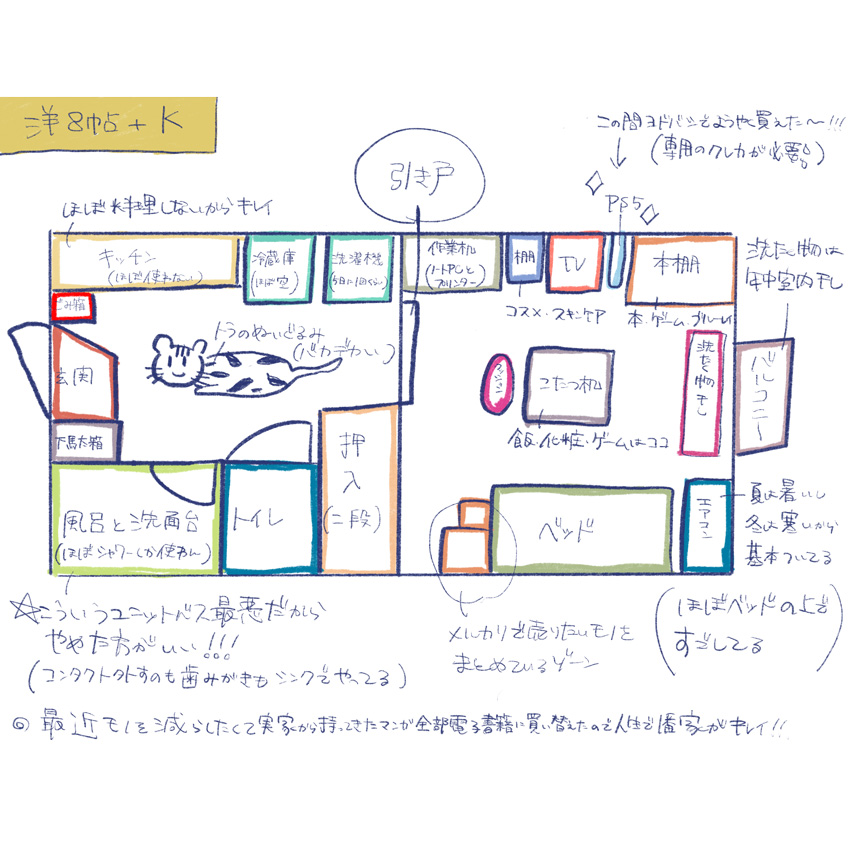 洋8帖+K
この間ヨドバシでようやく買えた〜!!!
(専用のクレカが必要)
PS5
引き戸
ほぼ料理しないからキレイ
キッチン
(ほぼ使わない)
冷蔵庫
(ほぼ空)
洗濯機
作業机
(ノートPCと
プリンター)
棚
TV
本棚
洗たく物は
年中室内干し
コスメ・スキンケア
本・ゲーム・ブルーレイ
ごみ箱
トラのぬいぐるみ
(バカデカい)
玄関
クッション
こたつ机
洗たく物干し
バルコニー
飯・化粧・ゲームはココ
下駄箱
押入
(二段)
風呂と洗面台
(ほぼシャワーしか使わん)
トイレ
ベッド
エアコン
夏は暑いし
冬は寒いから
基本ついてる
☆こういうユニットバス最悪だから
やめた方がいい!!!
(コンタクト外すのも歯みがきもシンクでやってる)
メルカリで売りたいモノを
まとめているゾーン
(ほぼベッドの上で
すごしてる)
◎最近モノを減らしたくて実家から持ってきたマンガ全部電子書籍に買い替えたので人生で1番家がキレイ!!